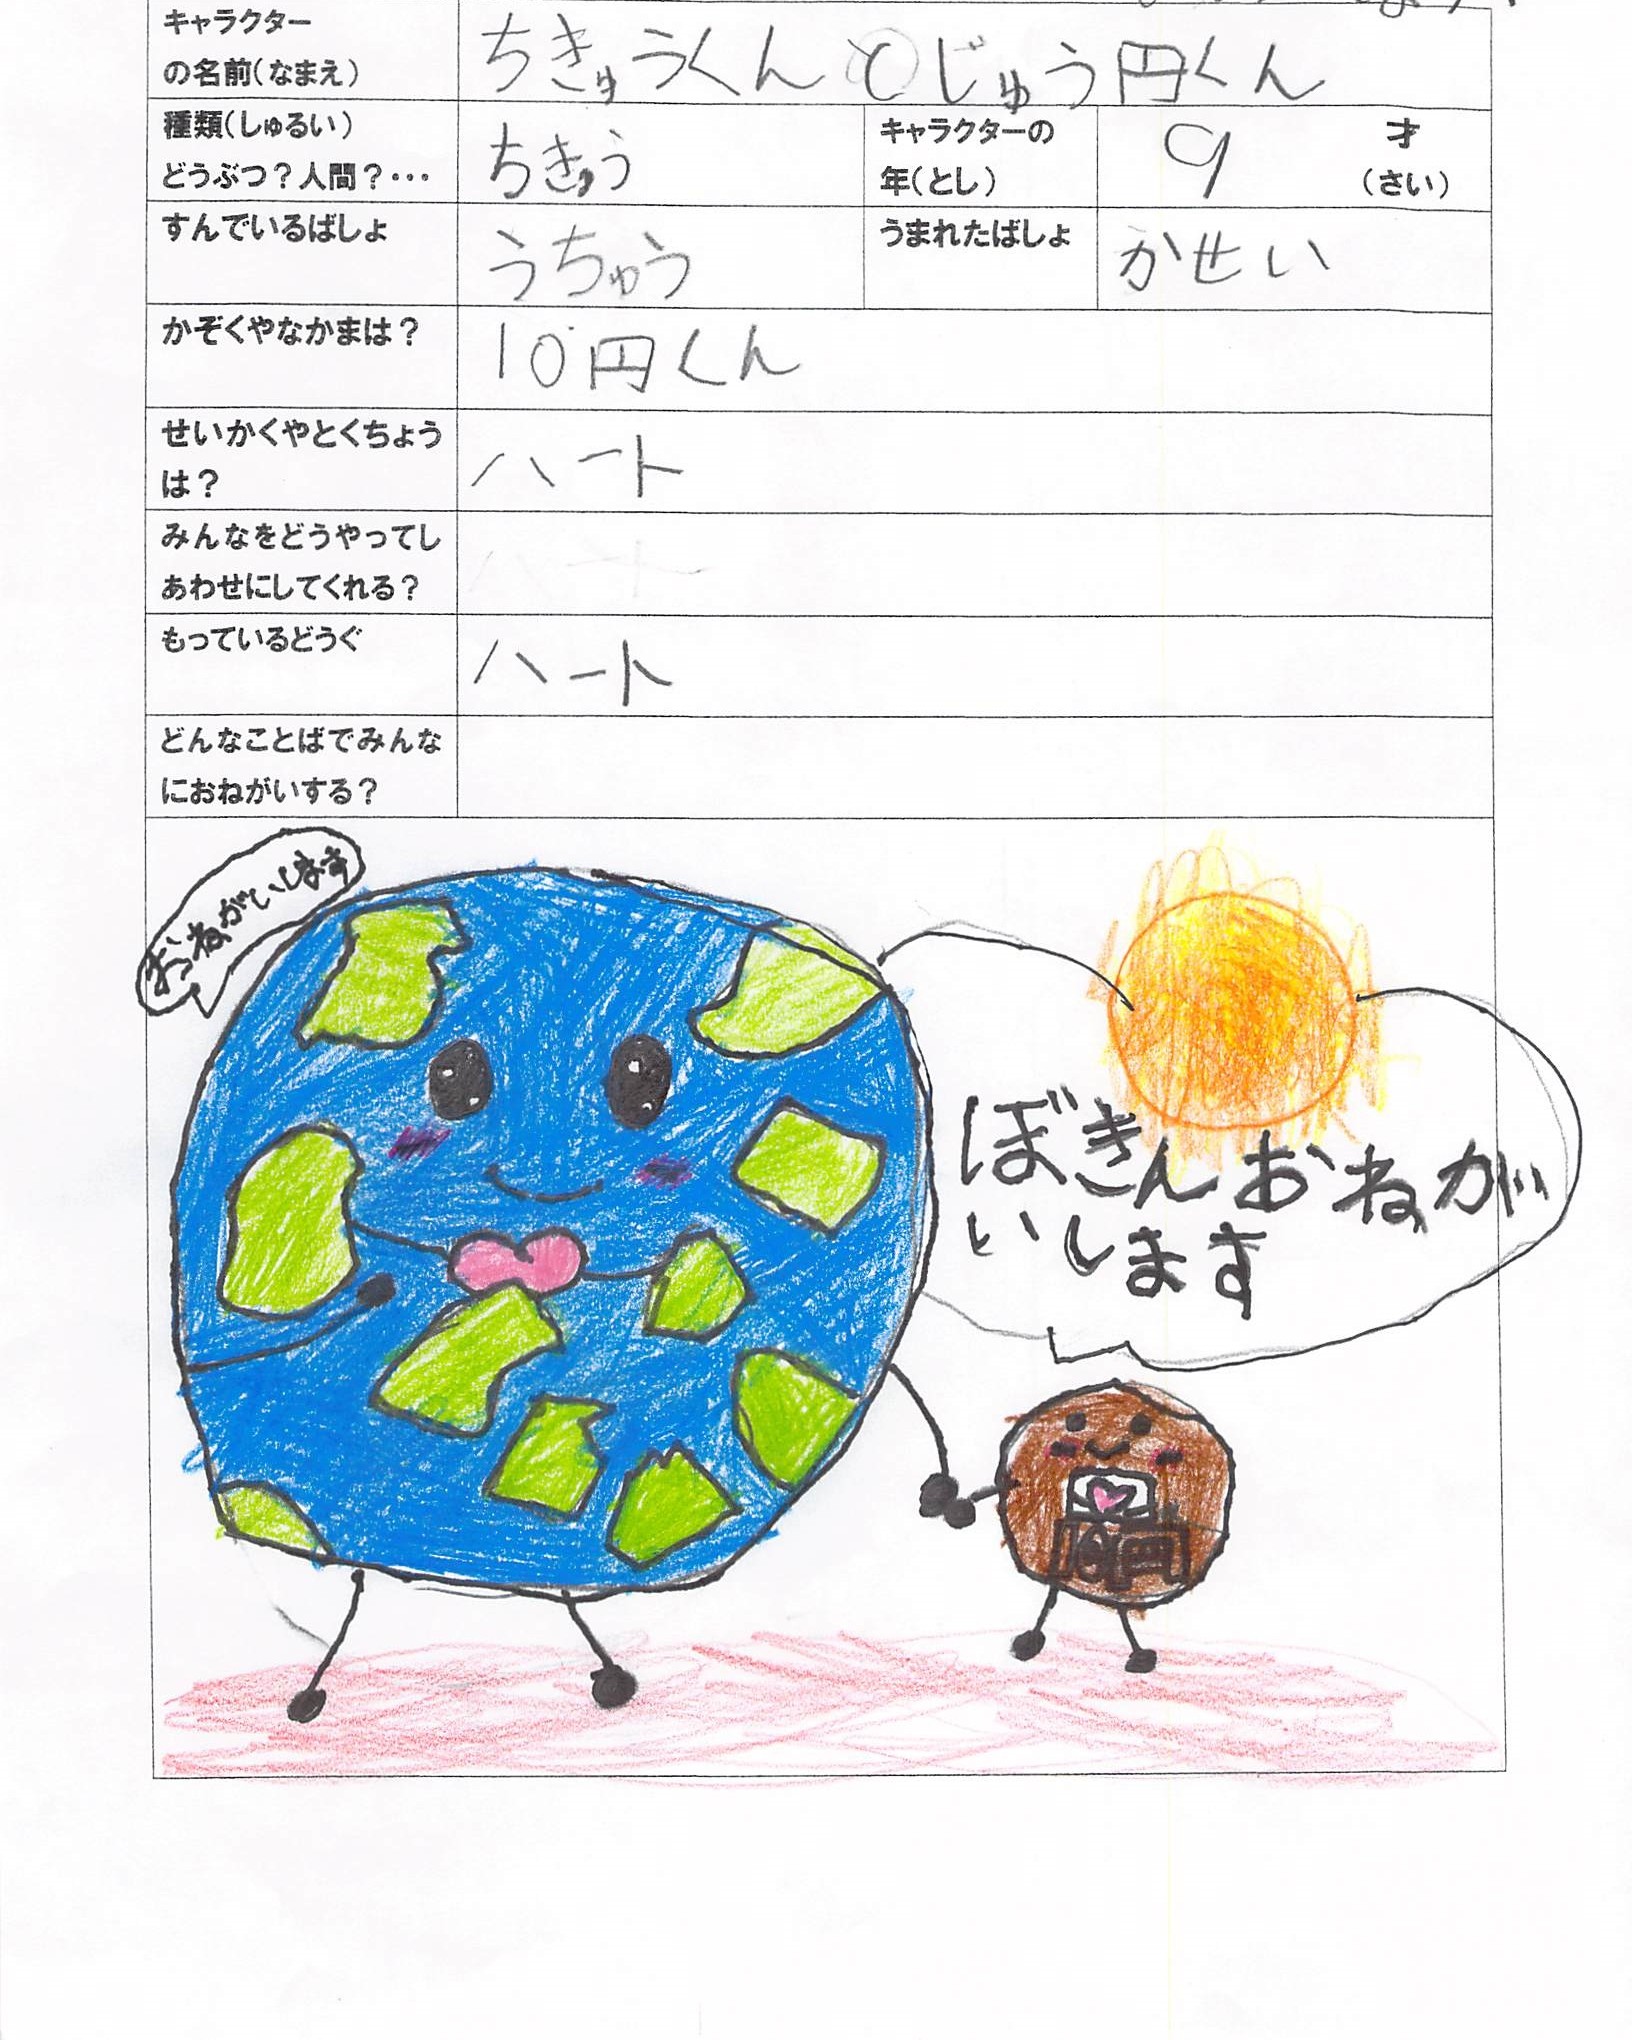 キャラクター
の名前(なまえ)
ちきゅうくんとじゅう円くん
種類(しゅるい)
どうぶつ？人間？・・・
ちきゅう
キャラクターの
年(とし)
9
才
(さい)
すんでいるばしょ
うちゅう
うまれたばしょ
かせい
かぞくやなかまは？
10円くん
せいかくやとくちょう
は？
ハート
みんなをどうやってし
あわせにしてくれる？
もっているどうぐ
ハート
どんなことばでみんな
におねがいする？
おねがいします
ぼきんおねが
いします
10円